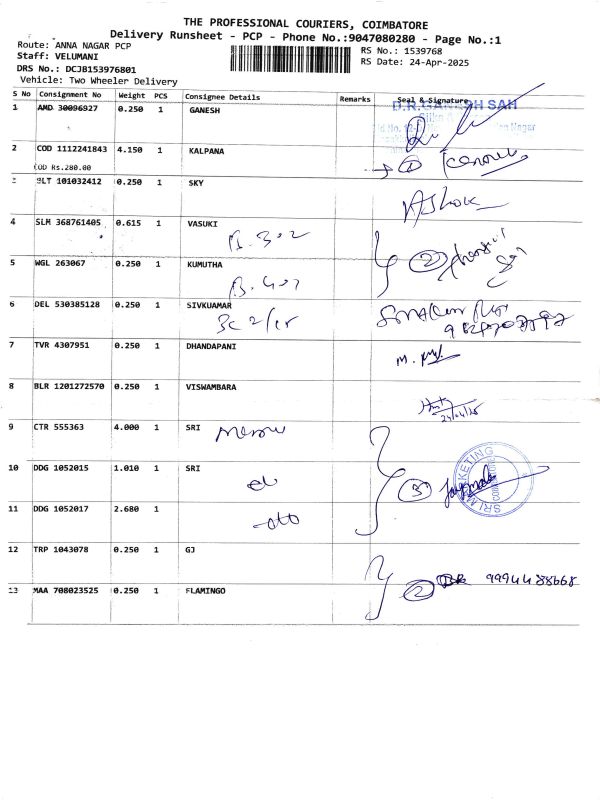 THE PROFESSIONAL COURIERS, COIMBATORE
Delivery Runsheet - PCP - Phone No.:9047080280 - Page No.:1
Route: ANNA NAGAR PCP
RS No.: 1539768
Staff: VELUMANI
RS Date: 24-Apr-2025
DRS No.: DCJB153976801
Vehicle: Two Wheeler Delivery
S No Consignment No Weight PCS Consignee Details Remarks Seal & Signature
1 AMD 30096927 0.250 1 GANESH
2 COD 1112241843 4.150 1 KALPANA
COD Rs.280.00
3 BLT 101032412 0.250 1 SKY
Ashok
4 SLM 368761405 0.615 1 VASUKI
B. 302
5 WGL 263067 0.250 1 KUMUTHA
2
6 DEL 530385128 0.250 1 SIVKUAMAR
7 TVR 4307951 0.250 1 DHANDAPANI
8 BLR 1201272570 0.250 1 VISWAMBARA
24/04/25
9 CTR 555363 4.000 1 SRI
10 DDG 1052015 1.010 1 SRI
3
SRI MARKETING
COIMBATORE
11 DDG 1052017 2.680 1
12 TRP 1043078 0.250 1 GJ
2 9994488668
13 MAA 708023525 0.250 1 FLAMINGO